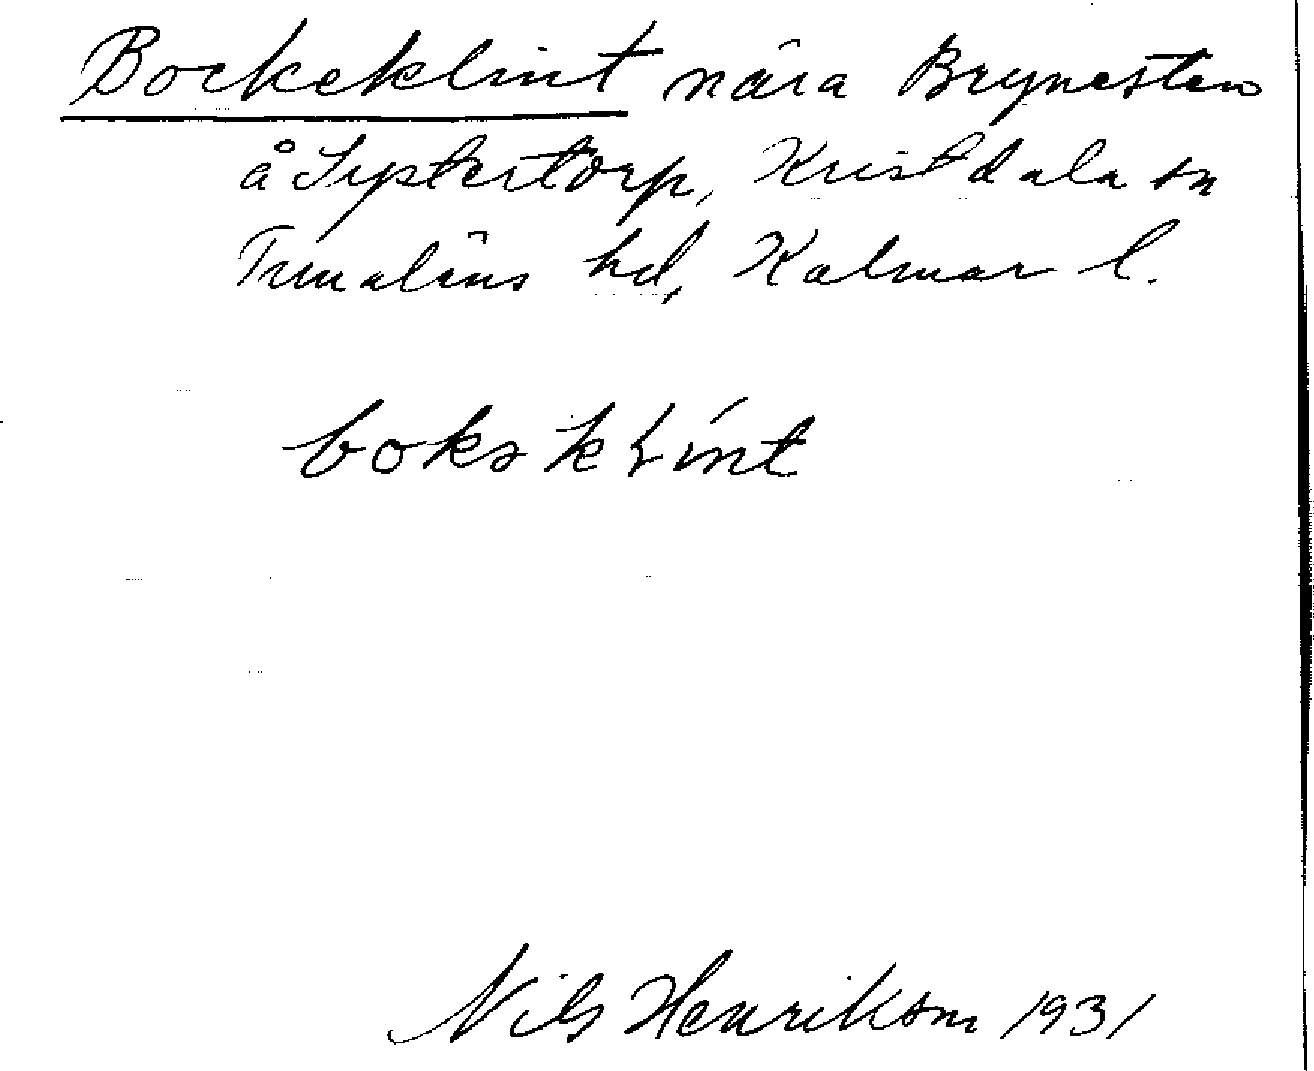 Bockeklint nära Brynesten
å Systertorp, Kristdala sn
Tunaläns hd, Kalmar l.
boksklint
Nils Henrikson 1931